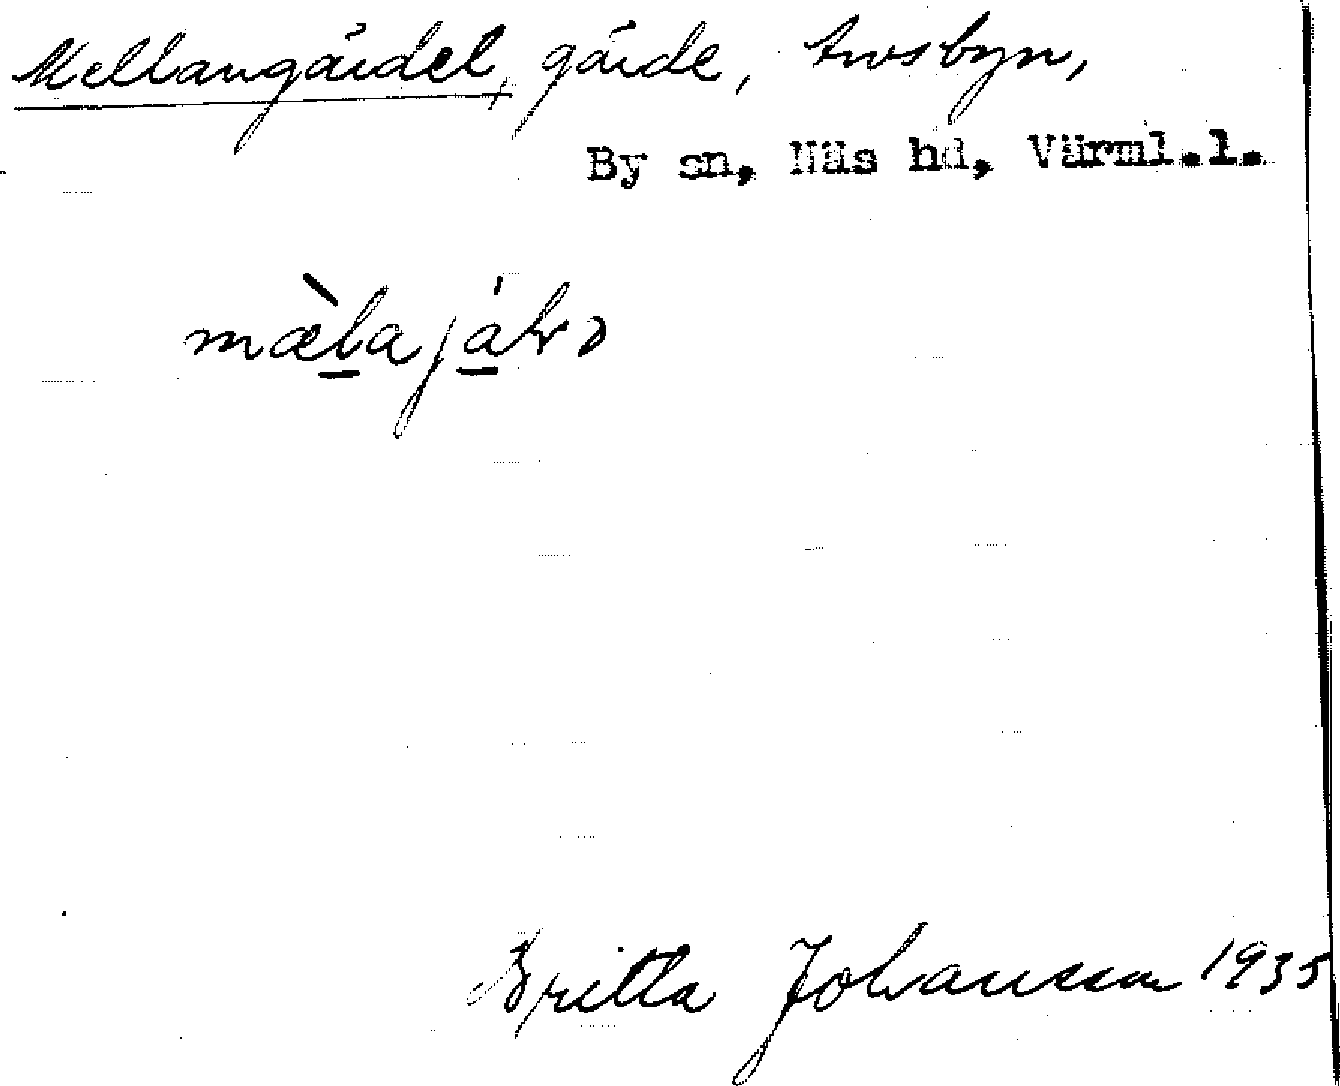 Mellangärdet, gärde, Åvsbyn,
By sn, Näs hd, Värml.l.
Britta Johansson 1935